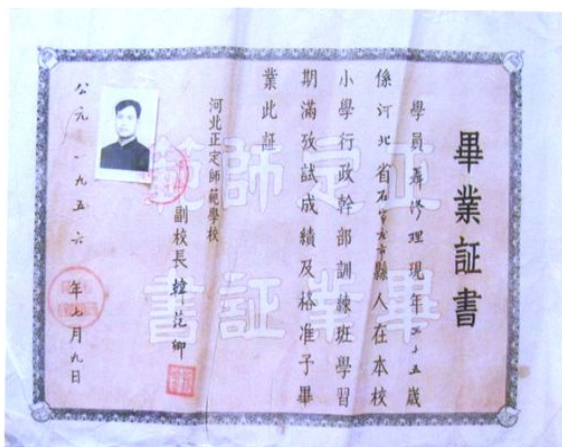 畢業証書
學員聶修理現年三十五歲
係河北省石家庄市縣人在本校
小學行政幹部訓練班學習
期滿攷試成績及格准予畢
業此証
河北正定師範學校
副校長韓范卿
公元一九五六年七月九日
正定師範
畢業証書